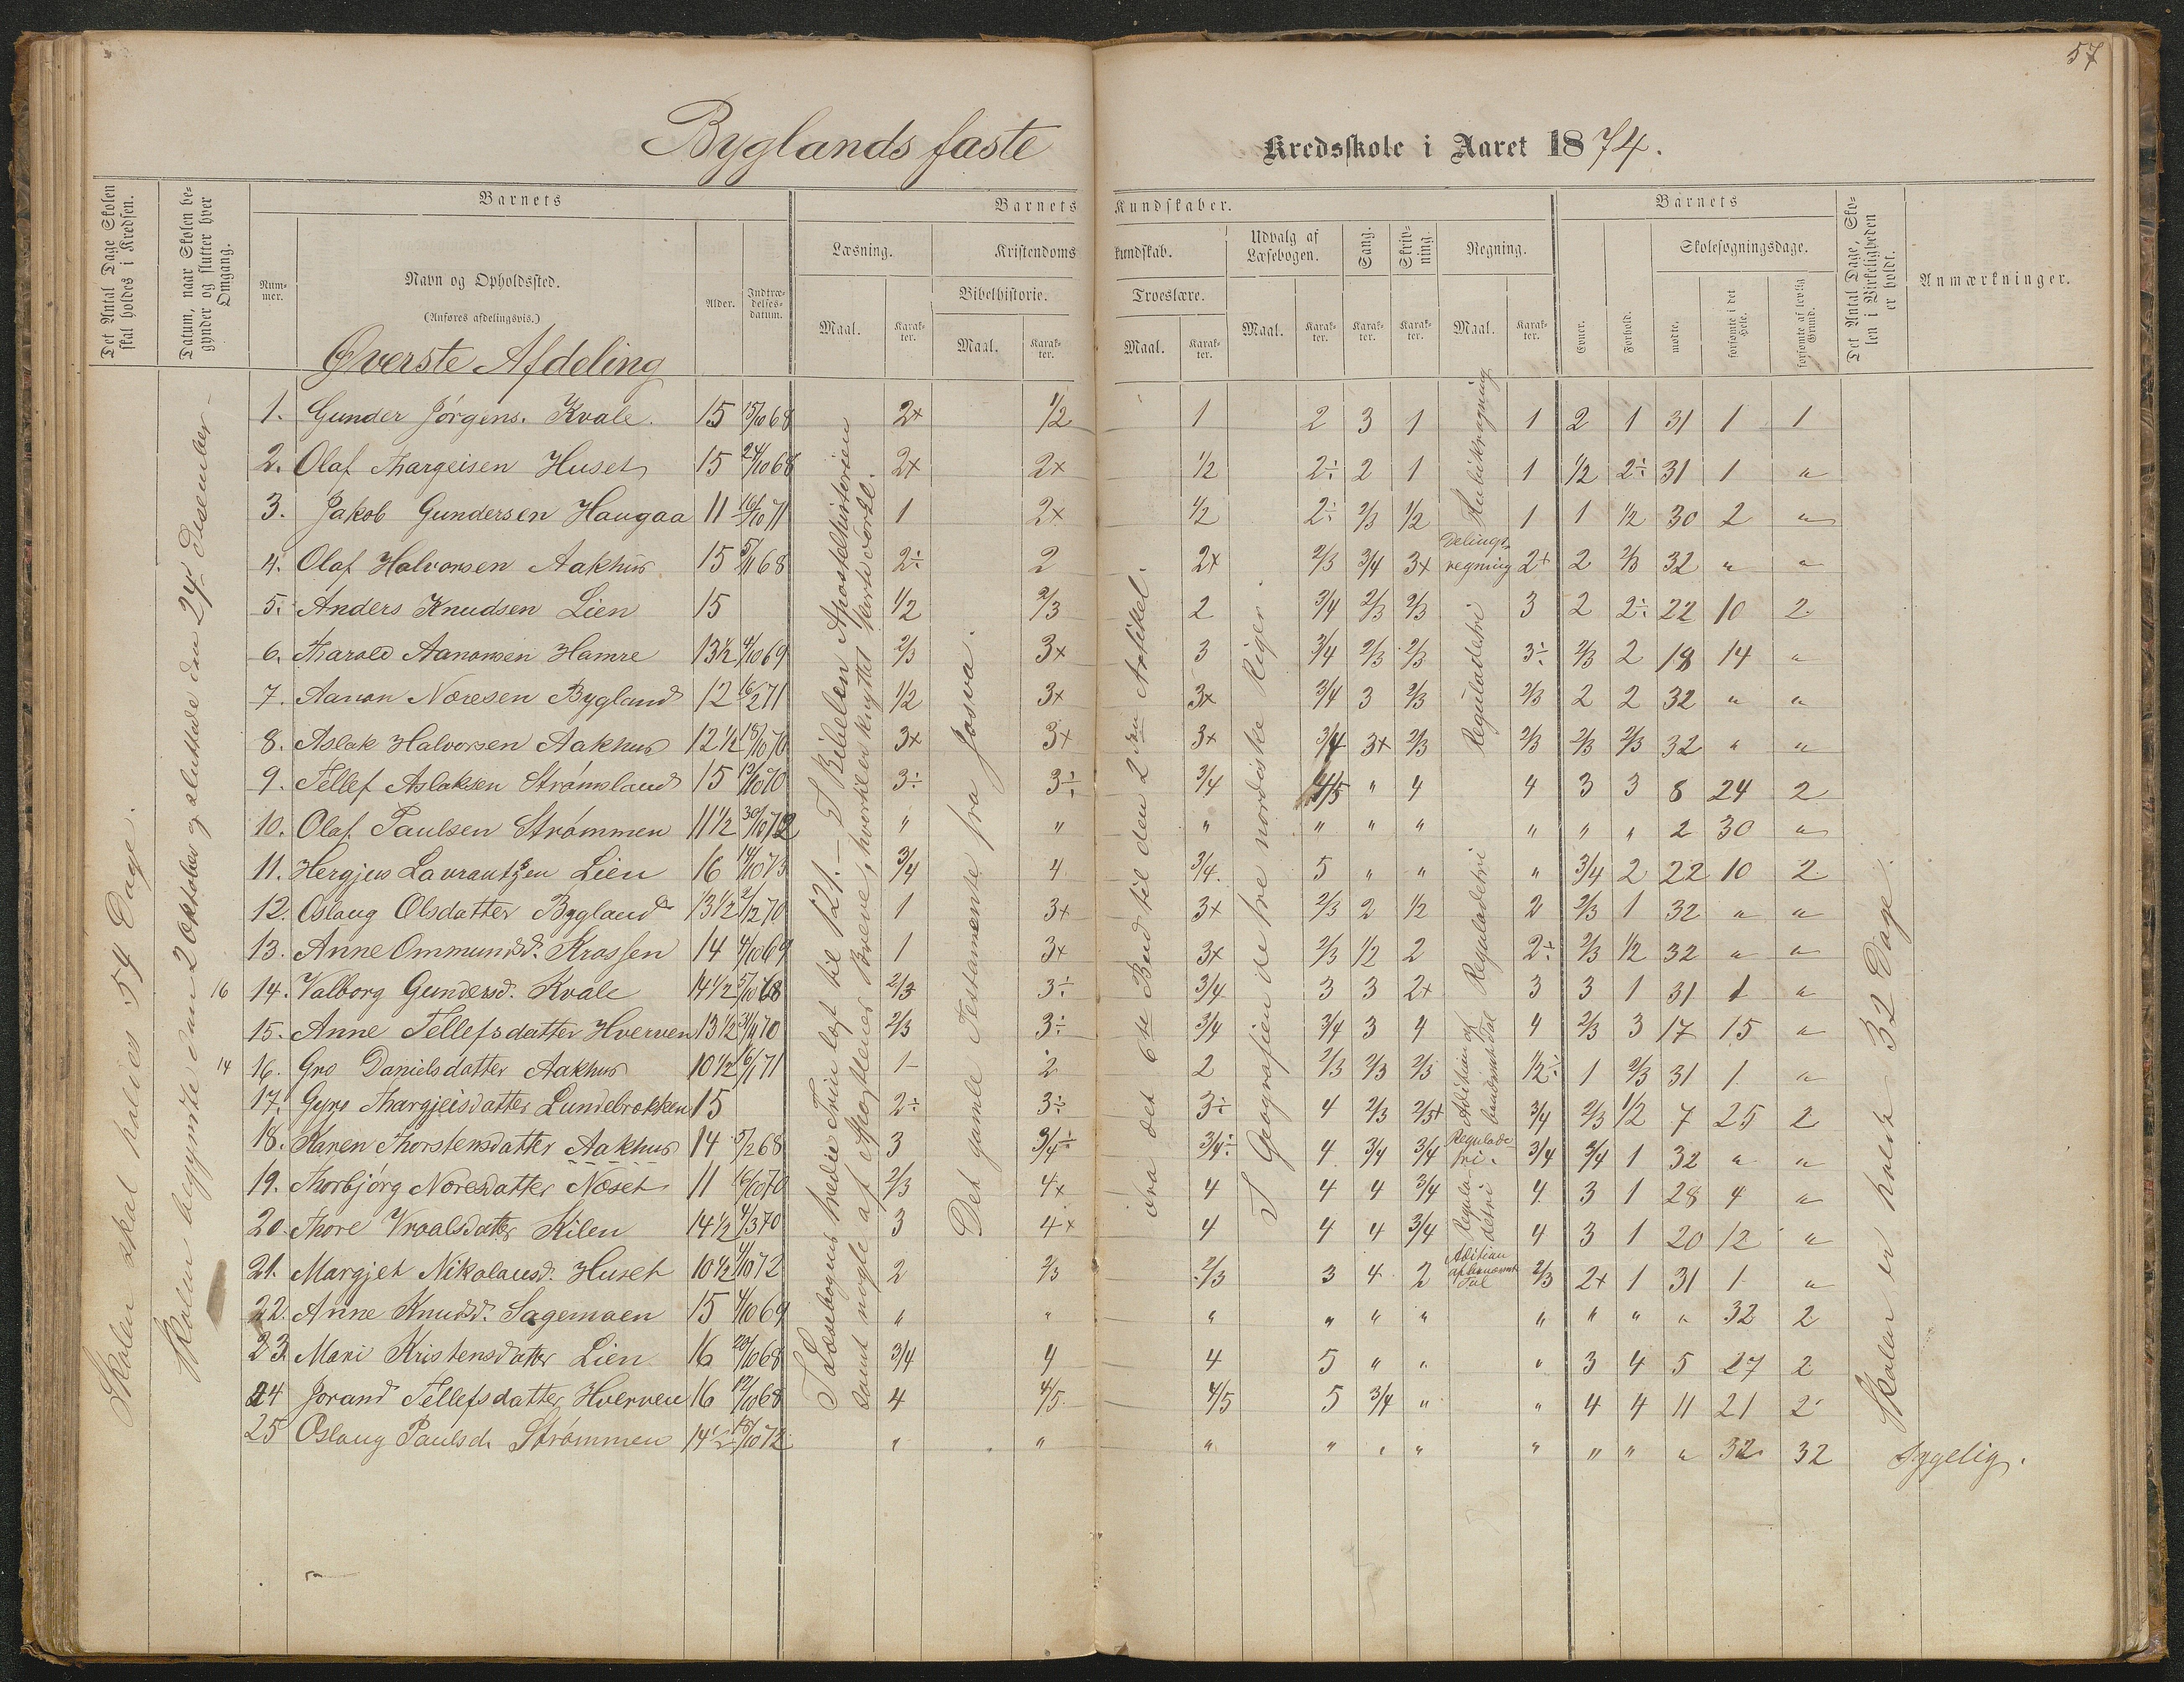 57
Byglands faste Kredsskole i Aaret 1874.
Det Antal Dage Skolen skal holdes i Kredsen.
Datum, naar Skolen begynder og slutter hver Omgang.
Barnets
Nummer.
Navn og Opholdssted.
(Anføres afdelingsvis.)
Alder.
Indtrædelsesdatum.
Barnets Kundskaber.
Læsning.
Maal.
Karakter.
Kristendomskundskab.
Bibelhistorie.
Maal.
Karakter.
Troeslære.
Maal.
Karakter.
Udvalg af Læsebogen.
Maal.
Karakter.
Sang.
Karakter.
Skrivning.
Karakter.
Regning.
Maal.
Karakter.
Barnets
Evner.
Forhold.
Skolesøgningsdage.
mødte.
forsømte i det Hele.
forsømte af lovlig Grund.
Det Antal Dage, Skolen i Virkeligheden er holdt.
Anmærkninger.
Øverste Afdeling
Skolen skal holdes 54 Dage.
Skolen begyndte den 2 Oktober og sluttede den 24 Desember
I Læsebogens tredie Trin læst til 121. – I Bibelen Apostelhistorien
samt nogle af Apostlenes Breve, hvortil er knyttet
Det gamle Testamente fra Josva.
fra det 6te Bud til den 2den Artikel.
I Geografien de tre nordiske Riger.
Skolen er holdt 32 Dage.
1. Gunder Jørgens. Kvale. 15 15/10 68 2+ 1/2 1 2 3 1 1 2 1 31 1 1
2. Olaf Thargeisen Huset 15 24/10 68 2+ 2+ 1/2 2÷ 2 1 1 1/2 2÷ 31 1 "
3. Jakob Gundersen Haugaa 11 16/10 71 1 2+ 1/2 2÷ 2/3 1/2 1 1 1/2 30 2 "
4. Olaf Halvorsen Aakhus 15 5/11 68 2÷ 2 2+ 2/3 3/4 3+ Delingsregning 2+ 2 2/3 32 " "
5. Anders Knudsen Lien 15 1/2 2/3 2 3/4 2/3 2/3 3 2 2÷ 22 10 2
6. Tharald Aanonsen Hamre 13 1/2 4/10 69 2/3 3+ 3 3/4 2/3 2/3 Reguladetri 3÷ 2/3 2 18 14 "
7. Aanon Noresen Bygland 12 16/2 71 1/2 3+ 3+ 3/4 3 2/3 2/3 2 2 32 " "
8. Aslak Halvorsen Aakhus 12 1/2 15/10 70 3+ 3+ 3+ 3/4 3+ 2/3 2/3 2/3 2/3 32 " "
9. Tellef Aslaksen Strømsland 15 12/10 70 3÷ 3÷ 3/4 4/5 " 4 4 3 3 8 24 2
10. Olaf Paulsen Strømmen 11 1/2 30/10 72 " " " " " " " " " 2 30 "
11. Hergjus Lavrantsen Lien 16 14/10 73 3/4 4 3/4 5 " " " 3/4 2 22 10 2
12. Oslaug Olsdatter Bygland 13 1/2 2/12 70 1 3+ 3+ 2/3 2 1/2 Reguladetri 2 2/3 1 32 " "
13. Anne Ommundsd. Krossen 14 4/10 69 1 3+ 3+ 2/3 1/2 2 2÷ 2/3 1/2 32 " "
16 14. Valborg Gundersd. Kvale 14 1/2 5/10 68 2/3 3÷ 3/4 3 3 2+ 3 3 1 31 1 "
15. Anne Tellefsdatter Hverven 13 1/2 2/3 3÷ 3/4 3/4 3 4 4 2/3 3 17 15 "
14 16. Gro Danielsdatter Aakhus 10 1/2 16/1 71 1 2 2 2/3 2/3 2/3 1/2÷ 1 2/3 31 1 "
17. Gyro Thargjeisdatter Lundebrokken 15 2÷ 3÷ 3÷ 4 2/3 2/3+ 3/4 2/3 1/2 7 25 2
18. Karen Thorstensdatter Aakhus 14 5/2 68 3 3/4÷ 3/4÷ 4 3/4 3/4 Reguladetri. 3/4 3/4 1 32 " "
19. Thorbjørg Noresdatter Næset 11 16/10 70 2/3 4+ 4 4 4 3/4 Reguladetri 4 3 1 28 4 "
20. Thore Vraalsdatter Kilen 14 1/2 4/3 70 3 4+ 4 4 4 3/4 4 3 1 20 12 "
21. Margjet Nikolausd. Huset 10 1/2 4/10 72 2 2/3 2/3 3 4 2 Adition af benævnte Tal 2/3 2+ 1 31 1 "
22. Anne Knudsd. Sagemoen 15 4/10 69 " " " " " " " " " " 32 2
23. Mari Kristensdatter Lien 16 20/10 68 3/4 4 4 5 " " " 3 4 5 27 2
24 Jorand Tellefsdatter Hverven 16 12/10 68 4 4/5 4/5 5 3/4 " " 4 4 11 21 2
25 Oslaug Paulsd. Strømmen 14 1/2 15/10 72 " " " " " " " " " " 32 32 Sygelig.